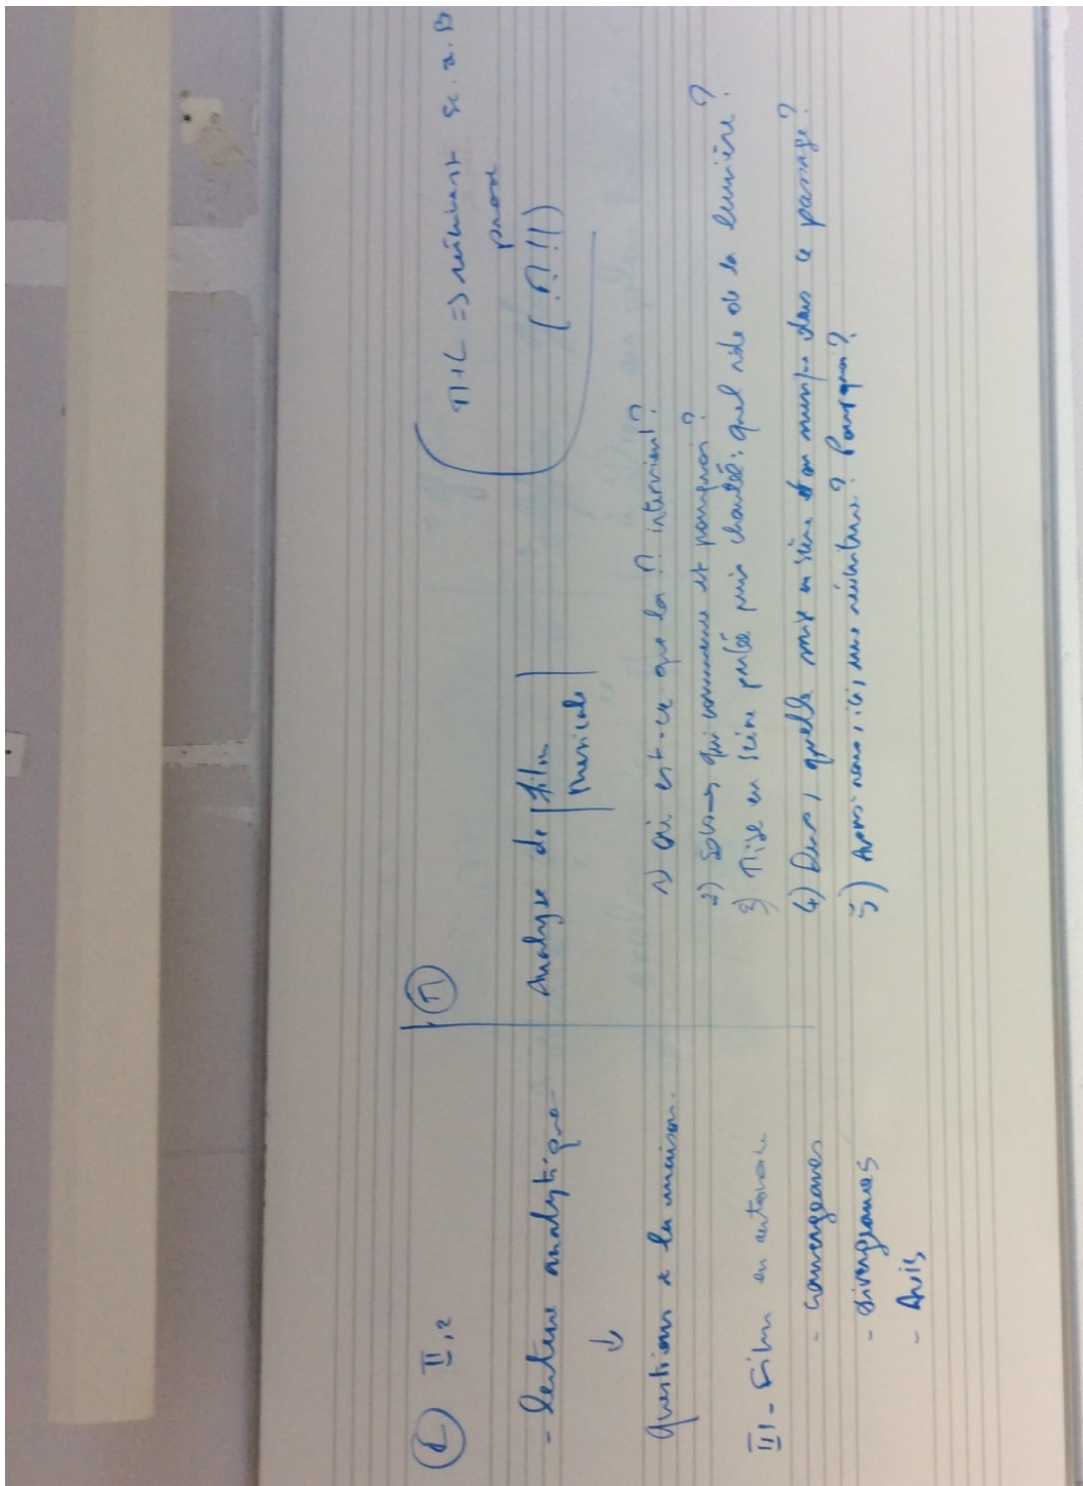 (L) II, 2
- lecture analytique
↓
Questions à la maison.
III - Film en autonomie
- convergences
- divergences
- Avis
(M)
Analyse de film
musicale
1) où est-ce que la M intervient?
2) Solos → qui commence et pourquoi?
3) Mise en scène parlée puis chantée: quel rôle de la lumière?
4) Duos, quelle mise en scène en musique dans ce passage?
5) Avons nous, ici, une ? Pourquoi?
M+L => sc. 2. B
prose
(M!!)